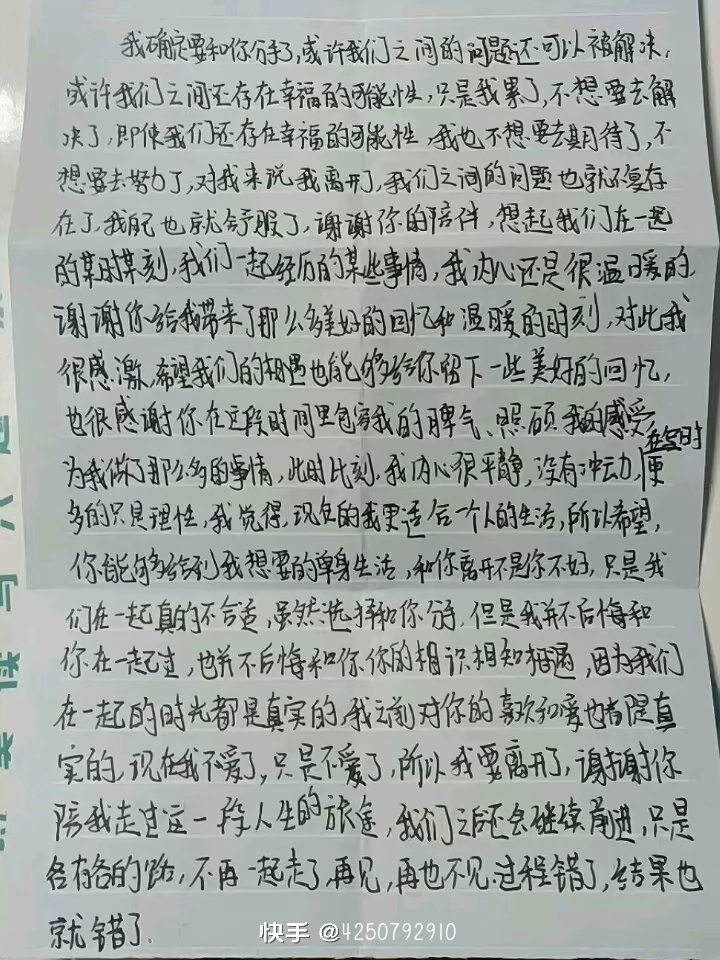 我确定要和你分手了,或许我们之间的问题还可以被解决,
或许我们之间还存在幸福的可能性,只是我累了,不想要去解
决了,即使我们还存在幸福的可能性,我也不想要去期待了,不
想要去努力了,对我来说我离开了,我们之间的问题也就不复存
在了,我呢也就舒服了,谢谢你的陪伴,想起我们在一起
的某时某刻,我们一起经历的某些事情,我内心还是很温暖的,
谢谢你给我带来了那么多美好的回忆和温暖的时刻,对此我
很感激,希望我们的相遇也能够给你留下一些美好的回忆,
也很感谢你在这段时间里包容我的脾气、照顾我的感受,
在空时
为我做了那么多的事情,此时此刻,我内心很平静,没有冲动,更
多的只是理性,我觉得,现在的我更适合一个人的生活,所以希望,
你能够给到我想要的单身生活,和你离开不是你不好,只是我
们在一起真的不合适,虽然选择和你分手,但是我并不后悔和
你在一起过,也并不后悔和你你的相识相知相遇,因为我们
在一起的时光都是真实的,我之前对你的喜欢和爱也都是真
实的,现在我不爱了,只是不爱了,所以我要离开了,谢谢你
陪我走过这一段人生的旅途,我们之后还会继续前进,只是
各有各的路,不再一起走了,再见,再也不见.过程错了,结果也
就错了.
快手 @4250792910